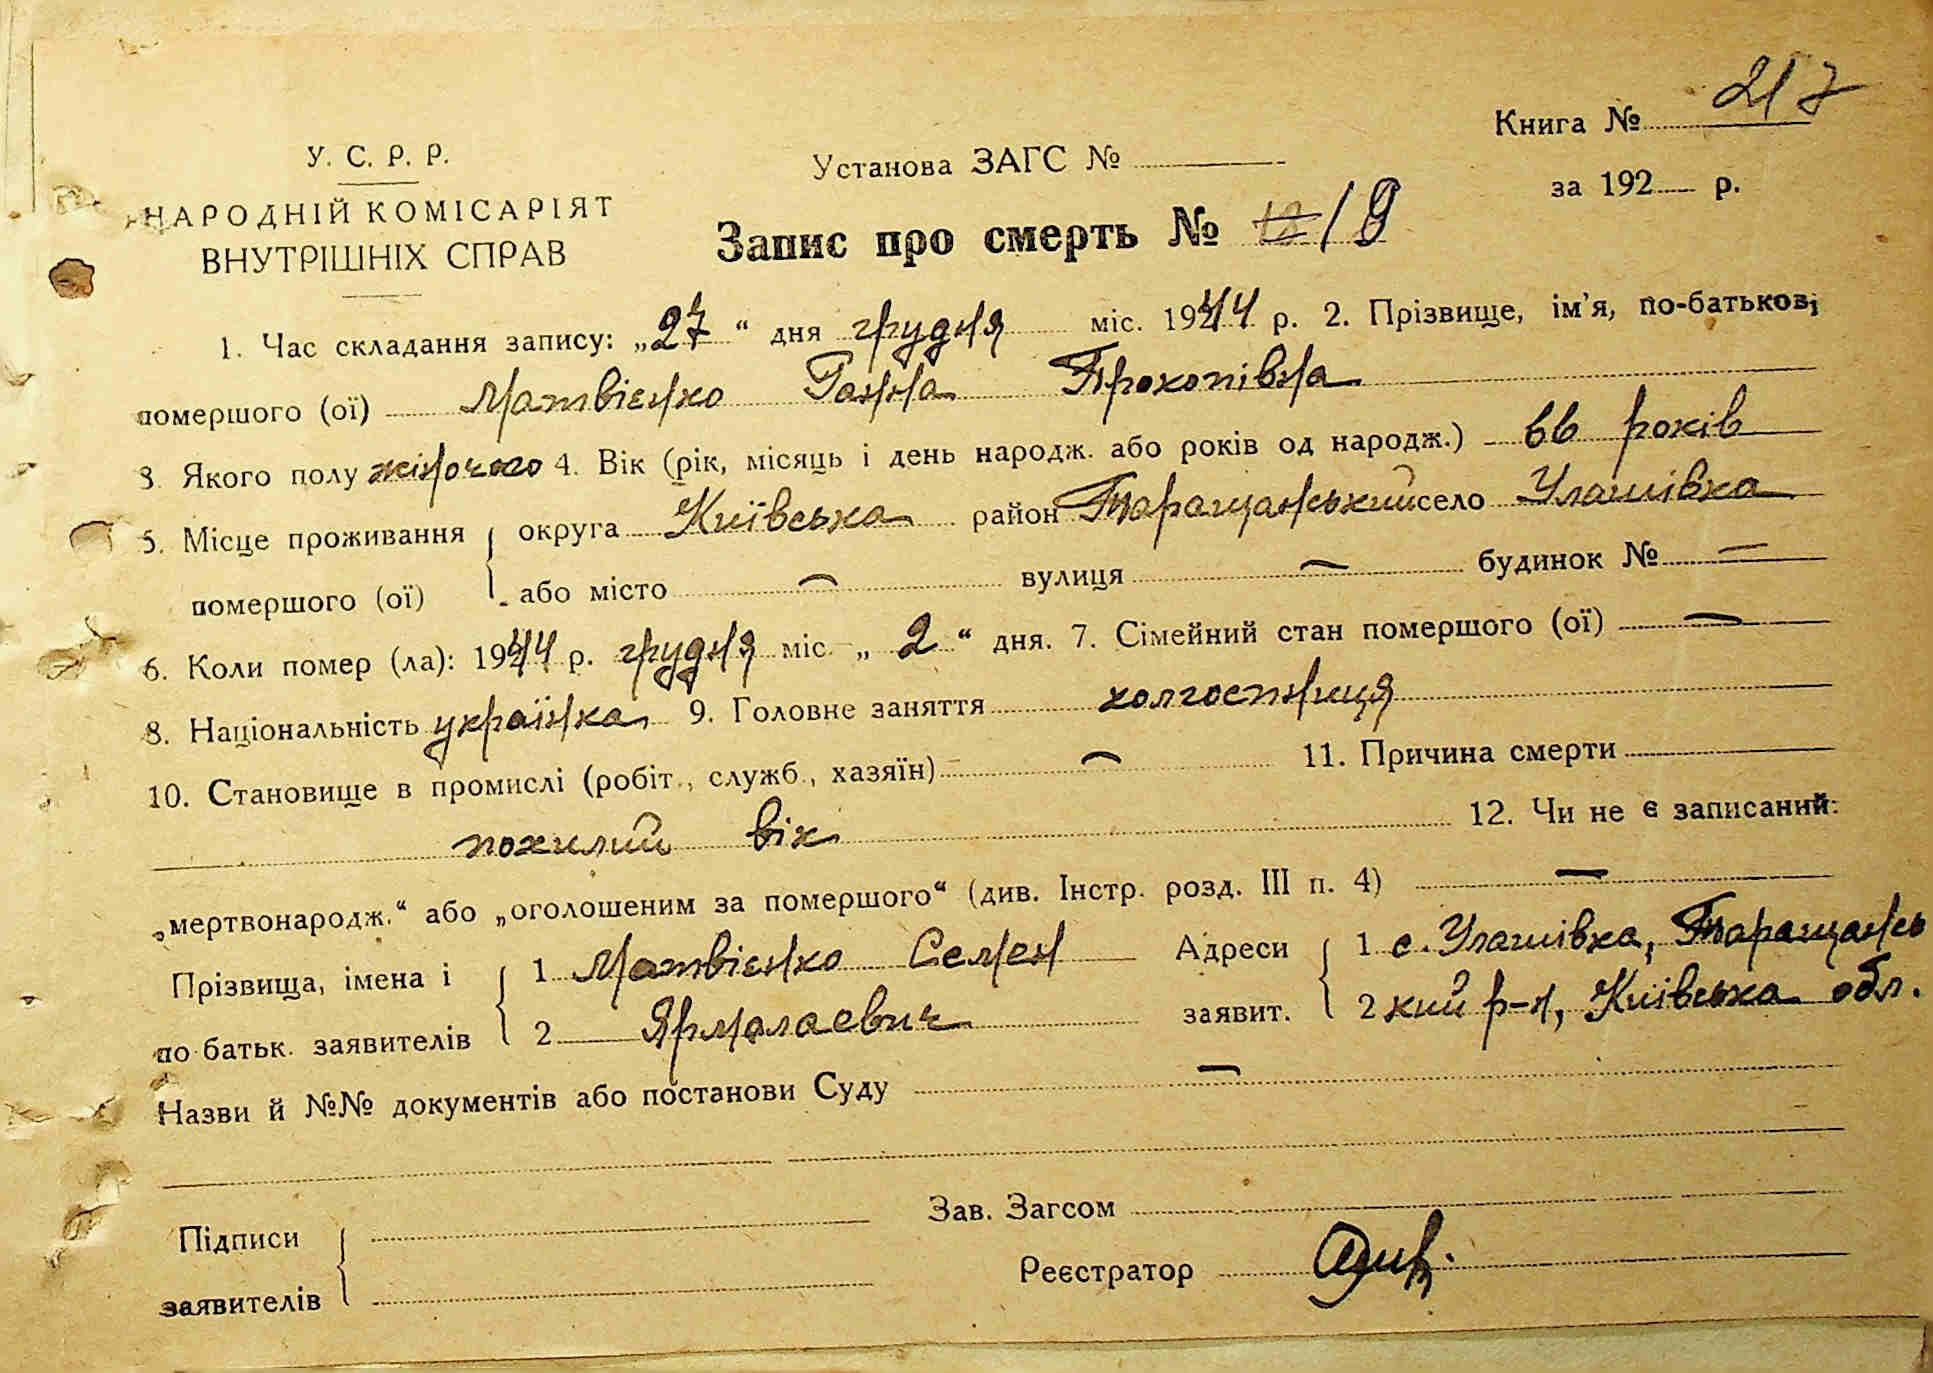 217
Книга №
У. С. Р. Р.
Установа ЗАГС №
за 192 р.
НАРОДНІЙ КОМІСАРІЯТ
ВНУТРІШНІХ СПРАВ
Запис про смерть № 18 19
1. Час складання запису: „27“ дня грудня міс. 1944 р. 2. Прізвище, ім'я, по-батькові
помершого (ої) Матвієнко Ганна Прокопівна
3. Якого полу жіночого 4. Вік (рік, місяць і день народж. або років од народж.) 66 років
5. Місце проживання округа Київська район Таращанський село Улашівка
помершого (ої) або місто — вулиця — будинок № —
6. Коли помер (ла): 1944 р. грудня міс. „2“ дня. 7. Сімейний стан помершого (ої) —
8. Національність українка 9. Головне заняття колгоспниця
10. Становище в промислі (робіт., служб., хазяїн) — 11. Причина смерти
похилий вік 12. Чи не є записаний:
„мертвонародж.“ або „оголошеним за помершого“ (див. Інстр. розд. III п. 4) —
Прізвища, імена і 1 Матвієнко Семен Адреси 1 с. Улашівка, Таращансь
по батьк. заявителів 2 Ярмолаевич заявит. 2 кий р-н, Київська обл.
Назви й №№ документів або постанови Суду —
Підписи Зав. Загсом
заявителів Реєстратор